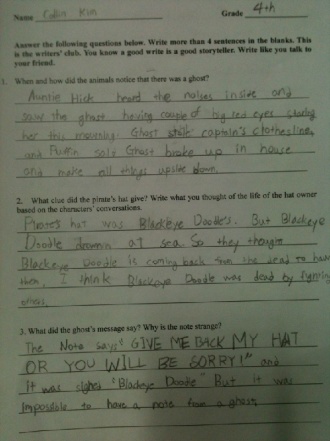 Name Collin Kim Grade 4th
Answer the following questions below. Write more than 4 sentences in the blanks. This
is the writers' club. You know a good write is a good storyteller. Write like you talk to
your friend.
1. When and how did the animals notice that there was a ghost?
Auntie Hick heard the noises inside and
saw the ghost having couple of big red eyes staring
her this morning. Ghost stole captain's clothesline,
and Puffin said Ghost brake up in house
and make all things upside down.
2. What clue did the pirate's hat give? Write what you thought of the life of the hat owner
based on the characters' conversations.
Pirate's hat was Blackeye Doodle's. But Blackeye
Doodle drownn at sea. So they thougt
Blackeye Doodle is coming back from the dead to haunt
then. I think Blackeye Doodle was dead by fighting
others.
3. What did the ghost's message say? Why is the note strange?
The Note say: "GIVE ME BACK MY HAT
OR YOU WILL BE SORRY!" and
it was sighed "Blackeye Doodle" But it was
impossible to have a note from a ghost.